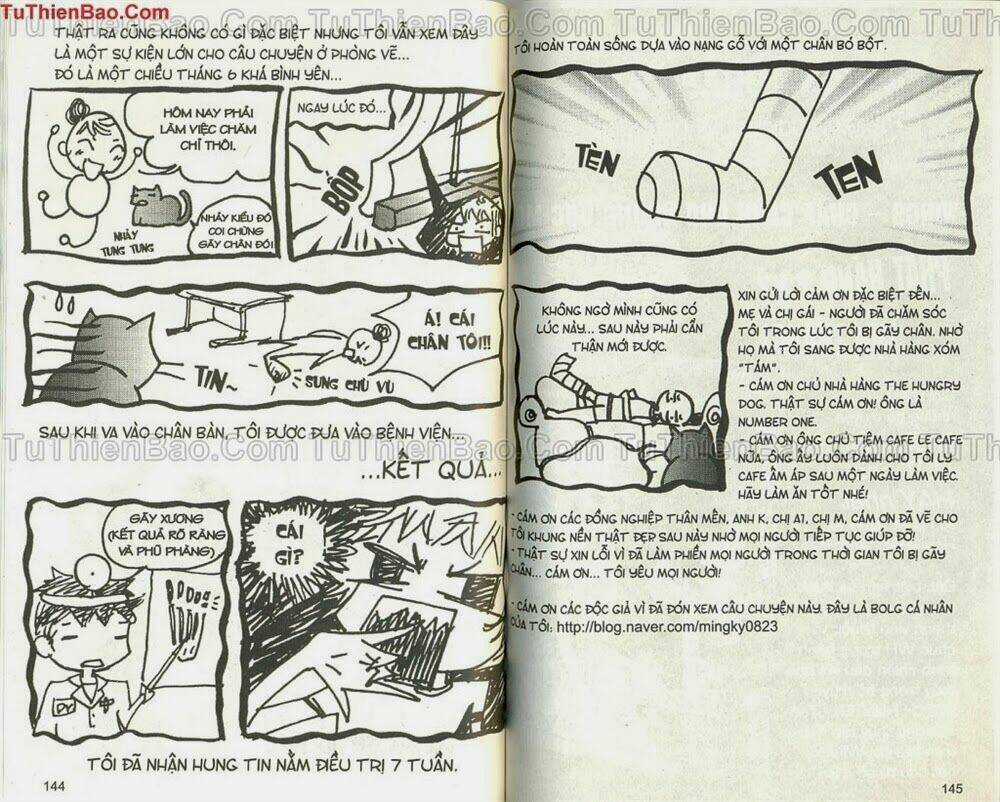 TuThienBao.Com
THẬT RA CŨNG KHÔNG CÓ GÌ ĐẶC BIỆT NHƯNG TÔI VẪN XEM ĐÂY
LÀ MỘT SỰ KIỆN LỚN CHO CÂU CHUYỆN Ở PHÒNG VẼ...
ĐÓ LÀ MỘT CHIỀU THÁNG 6 KHÁ BÌNH YÊN...
HÔM NAY PHẢI
LÀM VIỆC CHĂM
CHỈ THÔI.
NHẢY KIỂU ĐÓ
COI CHỪNG
GÃY CHÂN ĐÓ!
NHẢY
TUNG TUNG
NGAY LÚC ĐÓ...
BỐP
Á! CÁI
CHÂN TÔI!!!
TIN~
SƯNG CHÙ VÙ
SAU KHI VA VÀO CHÂN BÀN, TÔI ĐƯỢC ĐƯA VÀO BỆNH VIỆN...
TuThienBao.Com TuThienBao.Com TuThienBao.Com
...KẾT QUẢ...
GÃY XƯƠNG
(KẾT QUẢ RÕ RÀNG
VÀ PHŨ PHÀNG).
CÁI
GÌ?
TÔI ĐÃ NHẬN HUNG TIN NẰM ĐIỀU TRỊ 7 TUẦN.
144
TuThienBao.Com TuThienBao.Com
TÔI HOÀN TOÀN SỐNG DỰA VÀO NẠNG GỖ VỚI MỘT CHÂN BÓ BỘT.
TÈN
TEN
KHÔNG NGỜ MÌNH CŨNG CÓ
LÚC NÀY... SAU NÀY PHẢI CẨN
THẬN MỚI ĐƯỢC.
XIN GỬI LỜI CẢM ƠN ĐẶC BIỆT ĐẾN...
MẸ VÀ CHỊ GÁI - NGƯỜI ĐÃ CHĂM SÓC
TÔI TRONG LÚC TÔI BỊ GÃY CHÂN. NHỜ
HỌ MÀ TÔI SANG ĐƯỢC NHÀ HÀNG XÓM
"TẮM".
- CÁM ƠN CHỦ NHÀ HÀNG THE HUNGRY
DOG. THẬT SỰ CÁM ƠN! ÔNG LÀ
NUMBER ONE.
- CÁM ƠN ÔNG CHỦ TIỆM CAFE LE CAFE
NỮA, ÔNG ẤY LUÔN DÀNH CHO TÔI LY
CAFE ẤM ÁP SAU MỘT NGÀY LÀM VIỆC.
HÃY LÀM ĂN TỐT NHÉ!
- CÁM ƠN CÁC ĐỒNG NGHIỆP THÂN MẾN, ANH K, CHỊ A1, CHỊ M, CÁM ƠN ĐÃ VẼ CHO
TÔI KHUNG NỀN THẬT ĐẸP SAU NÀY NHỜ MỌI NGƯỜI TIẾP TỤC GIÚP ĐỠ!
- THẬT SỰ XIN LỖI VÌ ĐÃ LÀM PHIỀN MỌI NGƯỜI TRONG THỜI GIAN TÔI BỊ GÃY
CHÂN... CÁM ƠN... TÔI YÊU MỌI NGƯỜI!
- CÁM ƠN CÁC ĐỘC GIẢ VÌ ĐÃ ĐÓN XEM CÂU CHUYỆN NÀY. ĐÂY LÀ BOLG CÁ NHÂN
CỦA TÔI: http://blog.naver.com/mingky0823
145